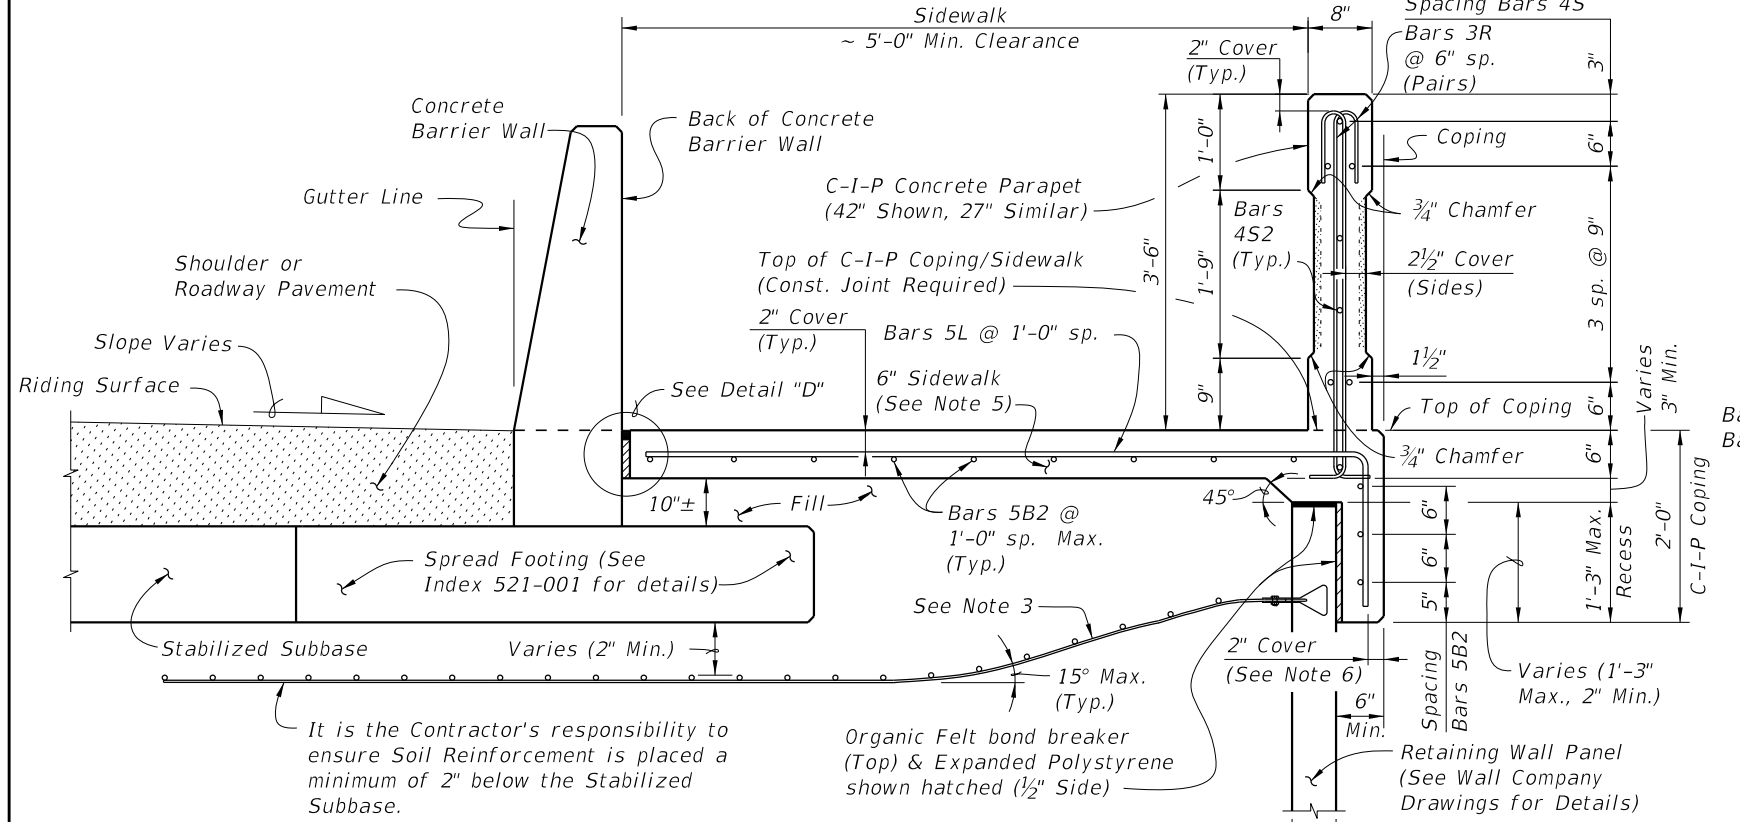 Sidewalk
~ 5'-0" Min. Clearance
8"
Spacing Bars 4S
Bars 3R
@ 6" sp.
(Pairs)
2" Cover
(Typ.)
3"
Concrete
Barrier Wall
Back of Concrete
Barrier Wall
1'-0"
Coping
6"
Gutter Line
C-I-P Concrete Parapet
(42" Shown, 27" Similar)
Bars
4S2
(Typ.)
3/4" Chamfer
3'-6"
1'-9"
Shoulder or
Roadway Pavement
Top of C-I-P Coping/Sidewalk
(Const. Joint Required)
2 1/2" Cover
(Sides)
3 sp. @ 9"
2" Cover
(Typ.)
Bars 5L @ 1'-0" sp.
Slope Varies
Riding Surface
See Detail "D"
6" Sidewalk
(See Note 5)
9"
1 1/2"
Varies
3" Min.
Top of Coping
6"
Ba
Ba
3/4" Chamfer
6"
10"±
Fill
45°
Bars 5B2 @
1'-0" sp. Max.
(Typ.)
6"
6"
5"
1'-3" Max.
Recess
2'-0"
C-I-P Coping
Spread Footing (See
Index 521-001 for details)
See Note 3
Stabilized Subbase
Varies (2" Min.)
15° Max.
(Typ.)
2" Cover
(See Note 6)
6"
Min.
Spacing
Bars 5B2
Varies (1'-3"
Max., 2" Min.)
It is the Contractor's responsibility to
ensure Soil Reinforcement is placed a
minimum of 2" below the Stabilized
Subbase.
Organic Felt bond breaker
(Top) & Expanded Polystyrene
shown hatched (1/2" Side)
Retaining Wall Panel
(See Wall Company
Drawings for Details)